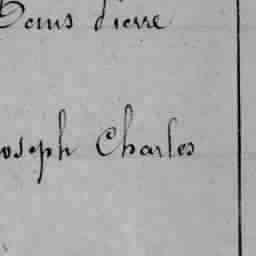 Pierre
oseph Charles